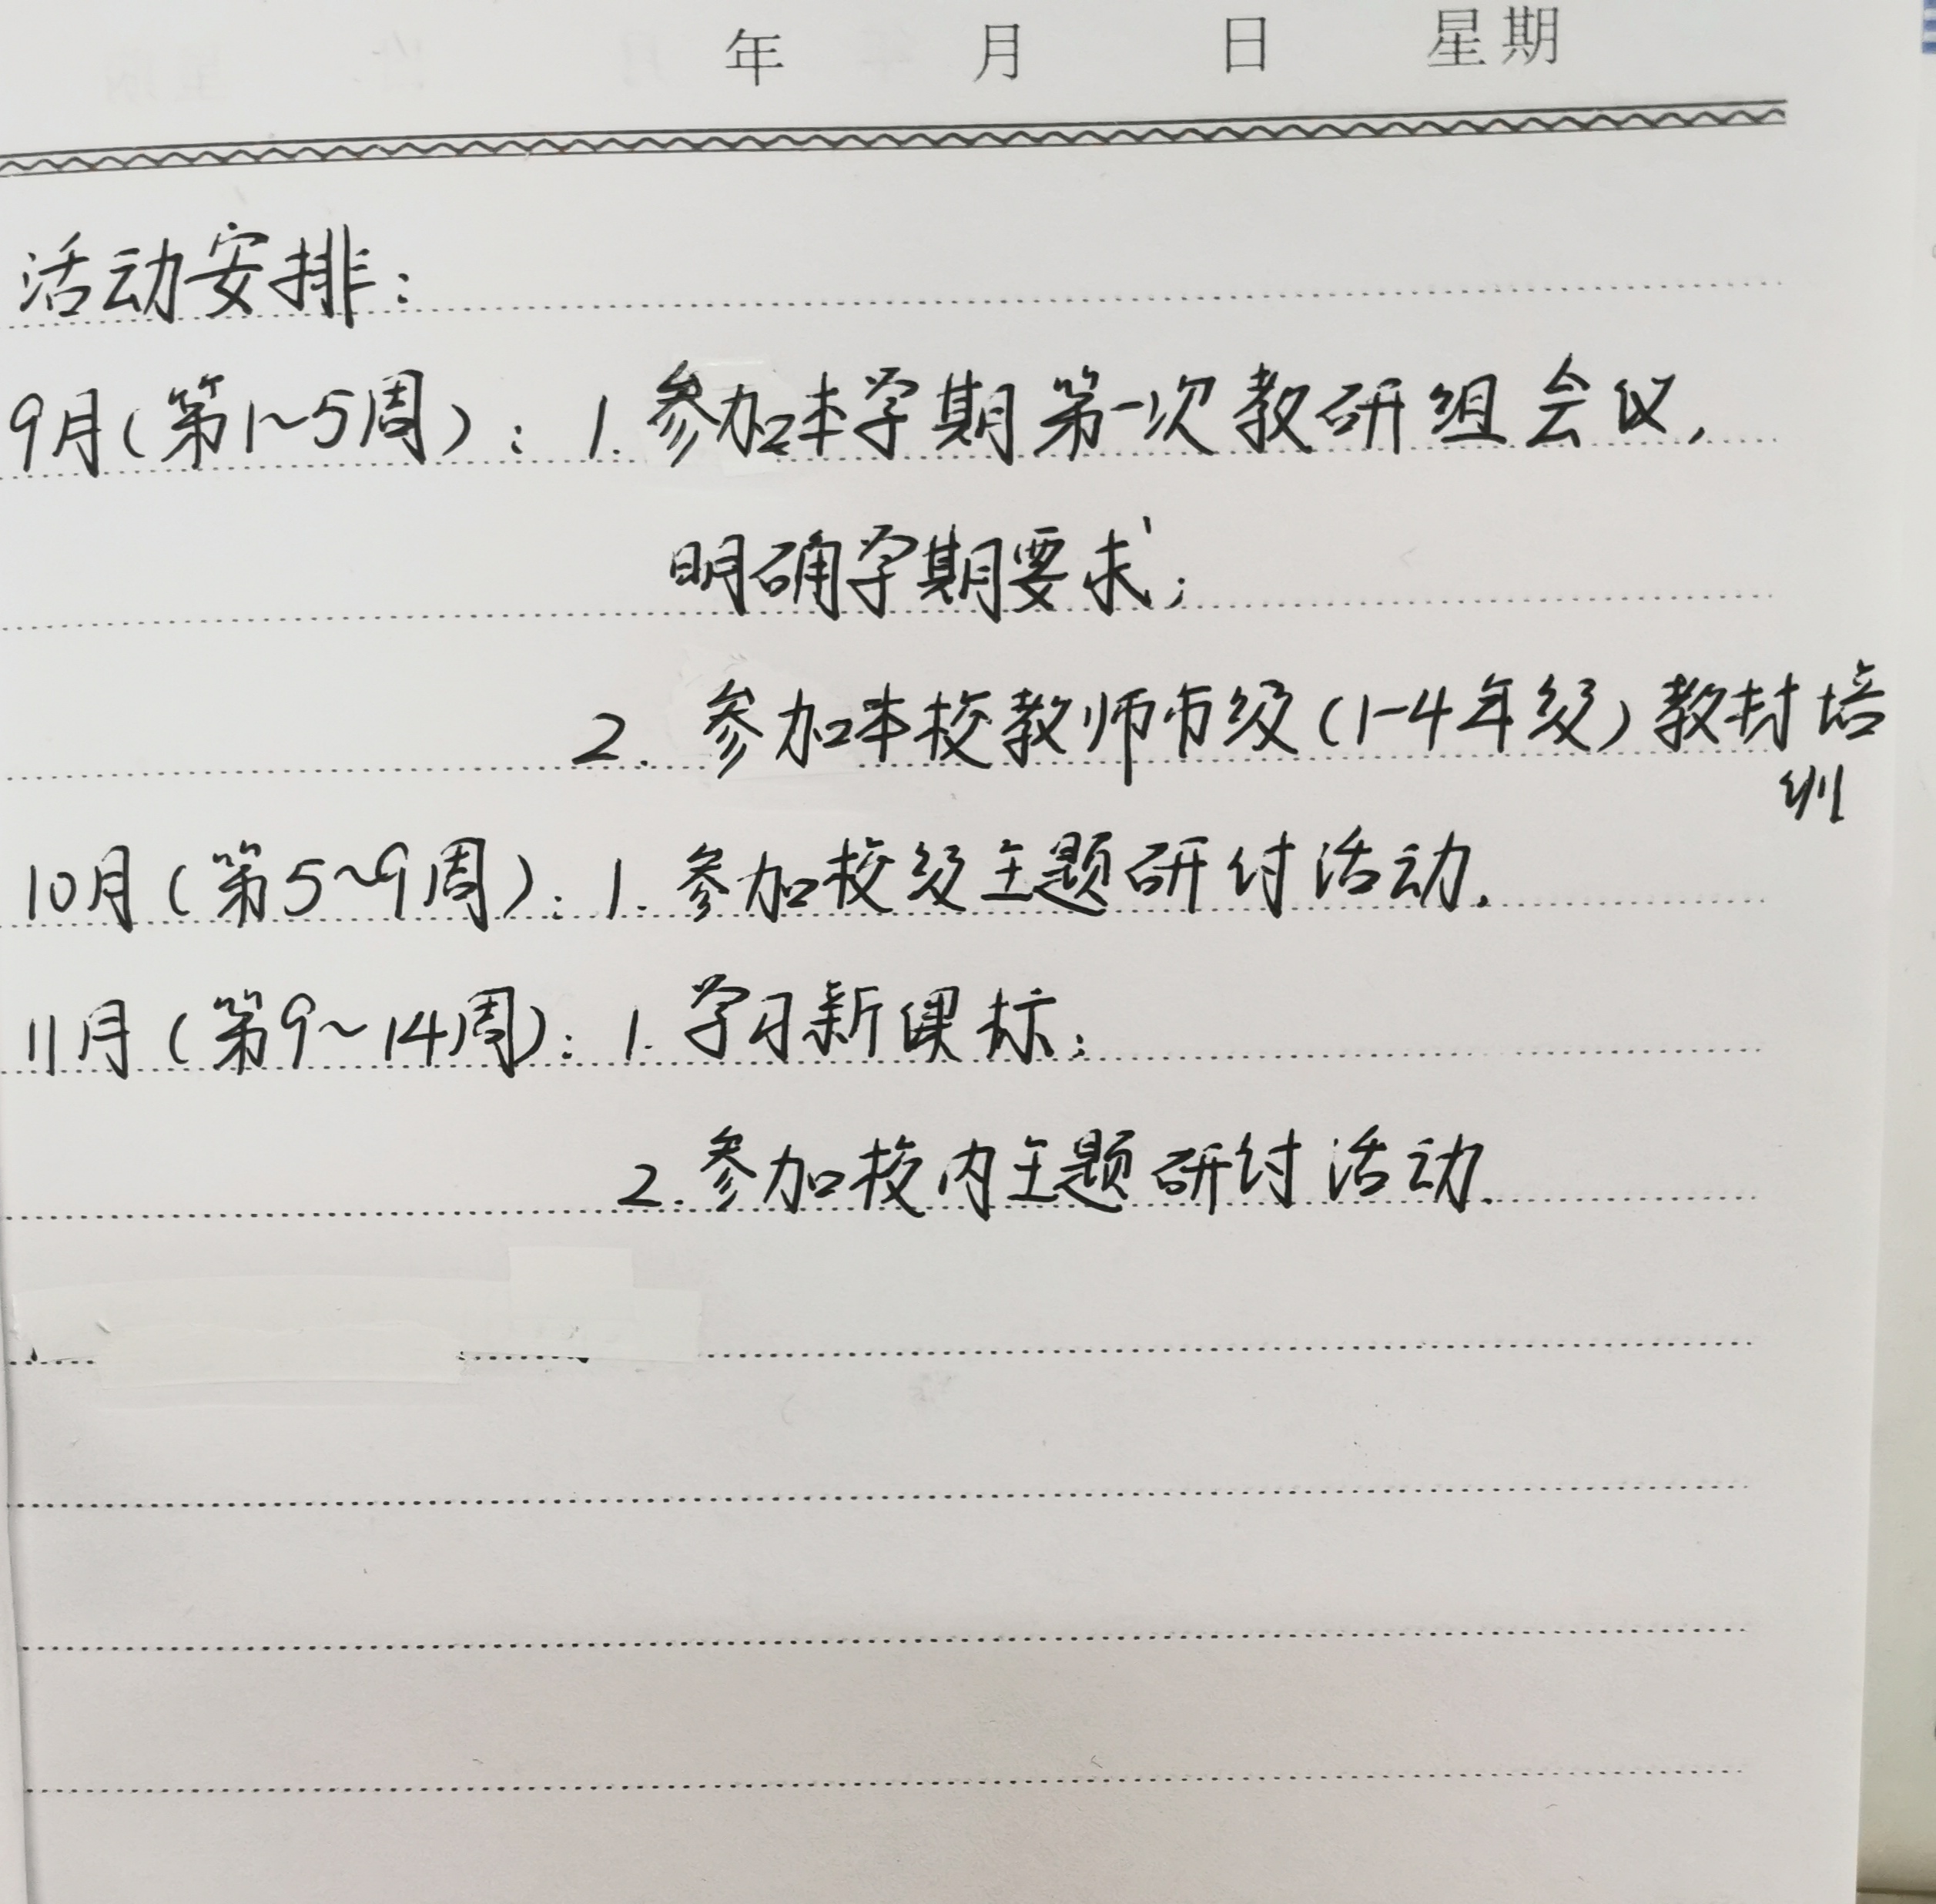 年 月 日 星期
活动安排：
9月（第1~5周）：1. 参加本学期第一次教研组会议，
明确学期要求；
2. 参加本校教师市级（1-4年级）教材培
训
10月（第5~9周）：1. 参加校级主题研讨活动.
11月（第9~14周）：1. 学习新课标；
2. 参加校内主题研讨活动.